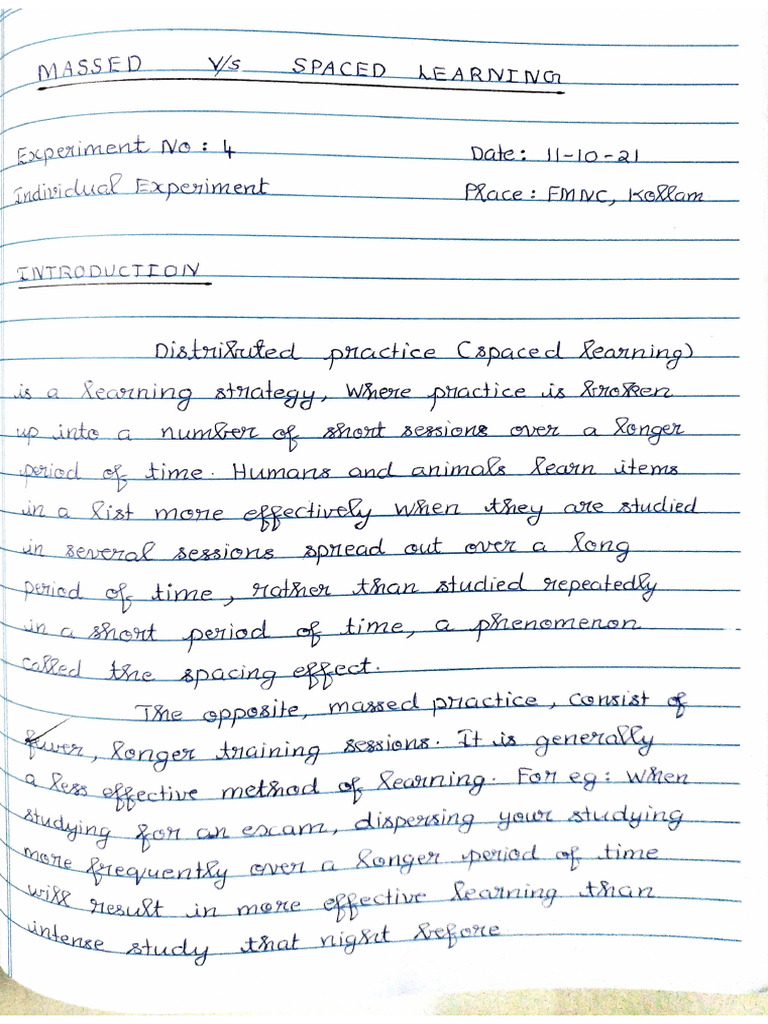 MASSED V/S SPACED LEARNING
Experiment No : 4 Date: 11-10-21
Individual Experiment Place: FMNC, Kollam
INTRODUCTION
Distributed practice (spaced learning)
is a learning strategy, where practice is broken
up into a number of short sessions over a longer
period of time. Humans and animals learn items
in a list more effectively when they are studied
in several sessions spread out over a long
period of time, rather than studied repeatedly
in a short period of time, a phenomenon
called the spacing effect.
The opposite, massed practice, consist of
fewer, longer training sessions. It is generally
a less effective method of learning. For eg: when
studying for an exam, dispersing your studying
more frequently over a longer period of time
will result in more effective learning than
intense study that night before